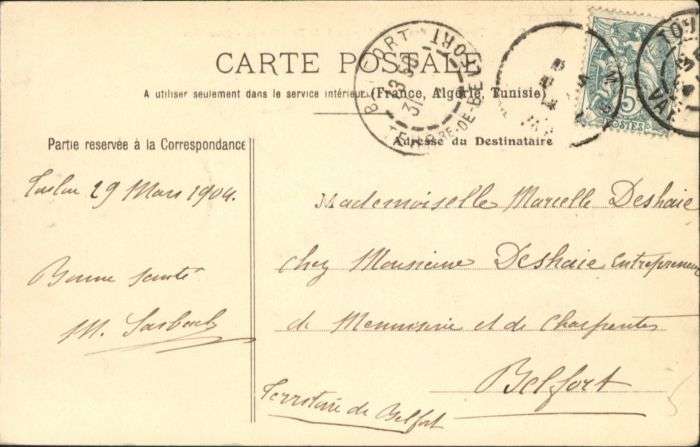 CARTE POSTALE
A utiliser seulement dans le service intérieur (France, Algérie, Tunisie)
Partie reservée à la Correspondance
Adresse du Destinataire
BELFORT
31
TERRRE-DE-BELFORT
5
POSTES
TOU
VAR
29 Mars 1904.
Bonne santé
M.
Mademoiselle Marcelle Deshaie
chez Monsieur Deshaie Entrepreneur
de Menuiserie et de Charpentes
Belfort
Territoire de Belfort